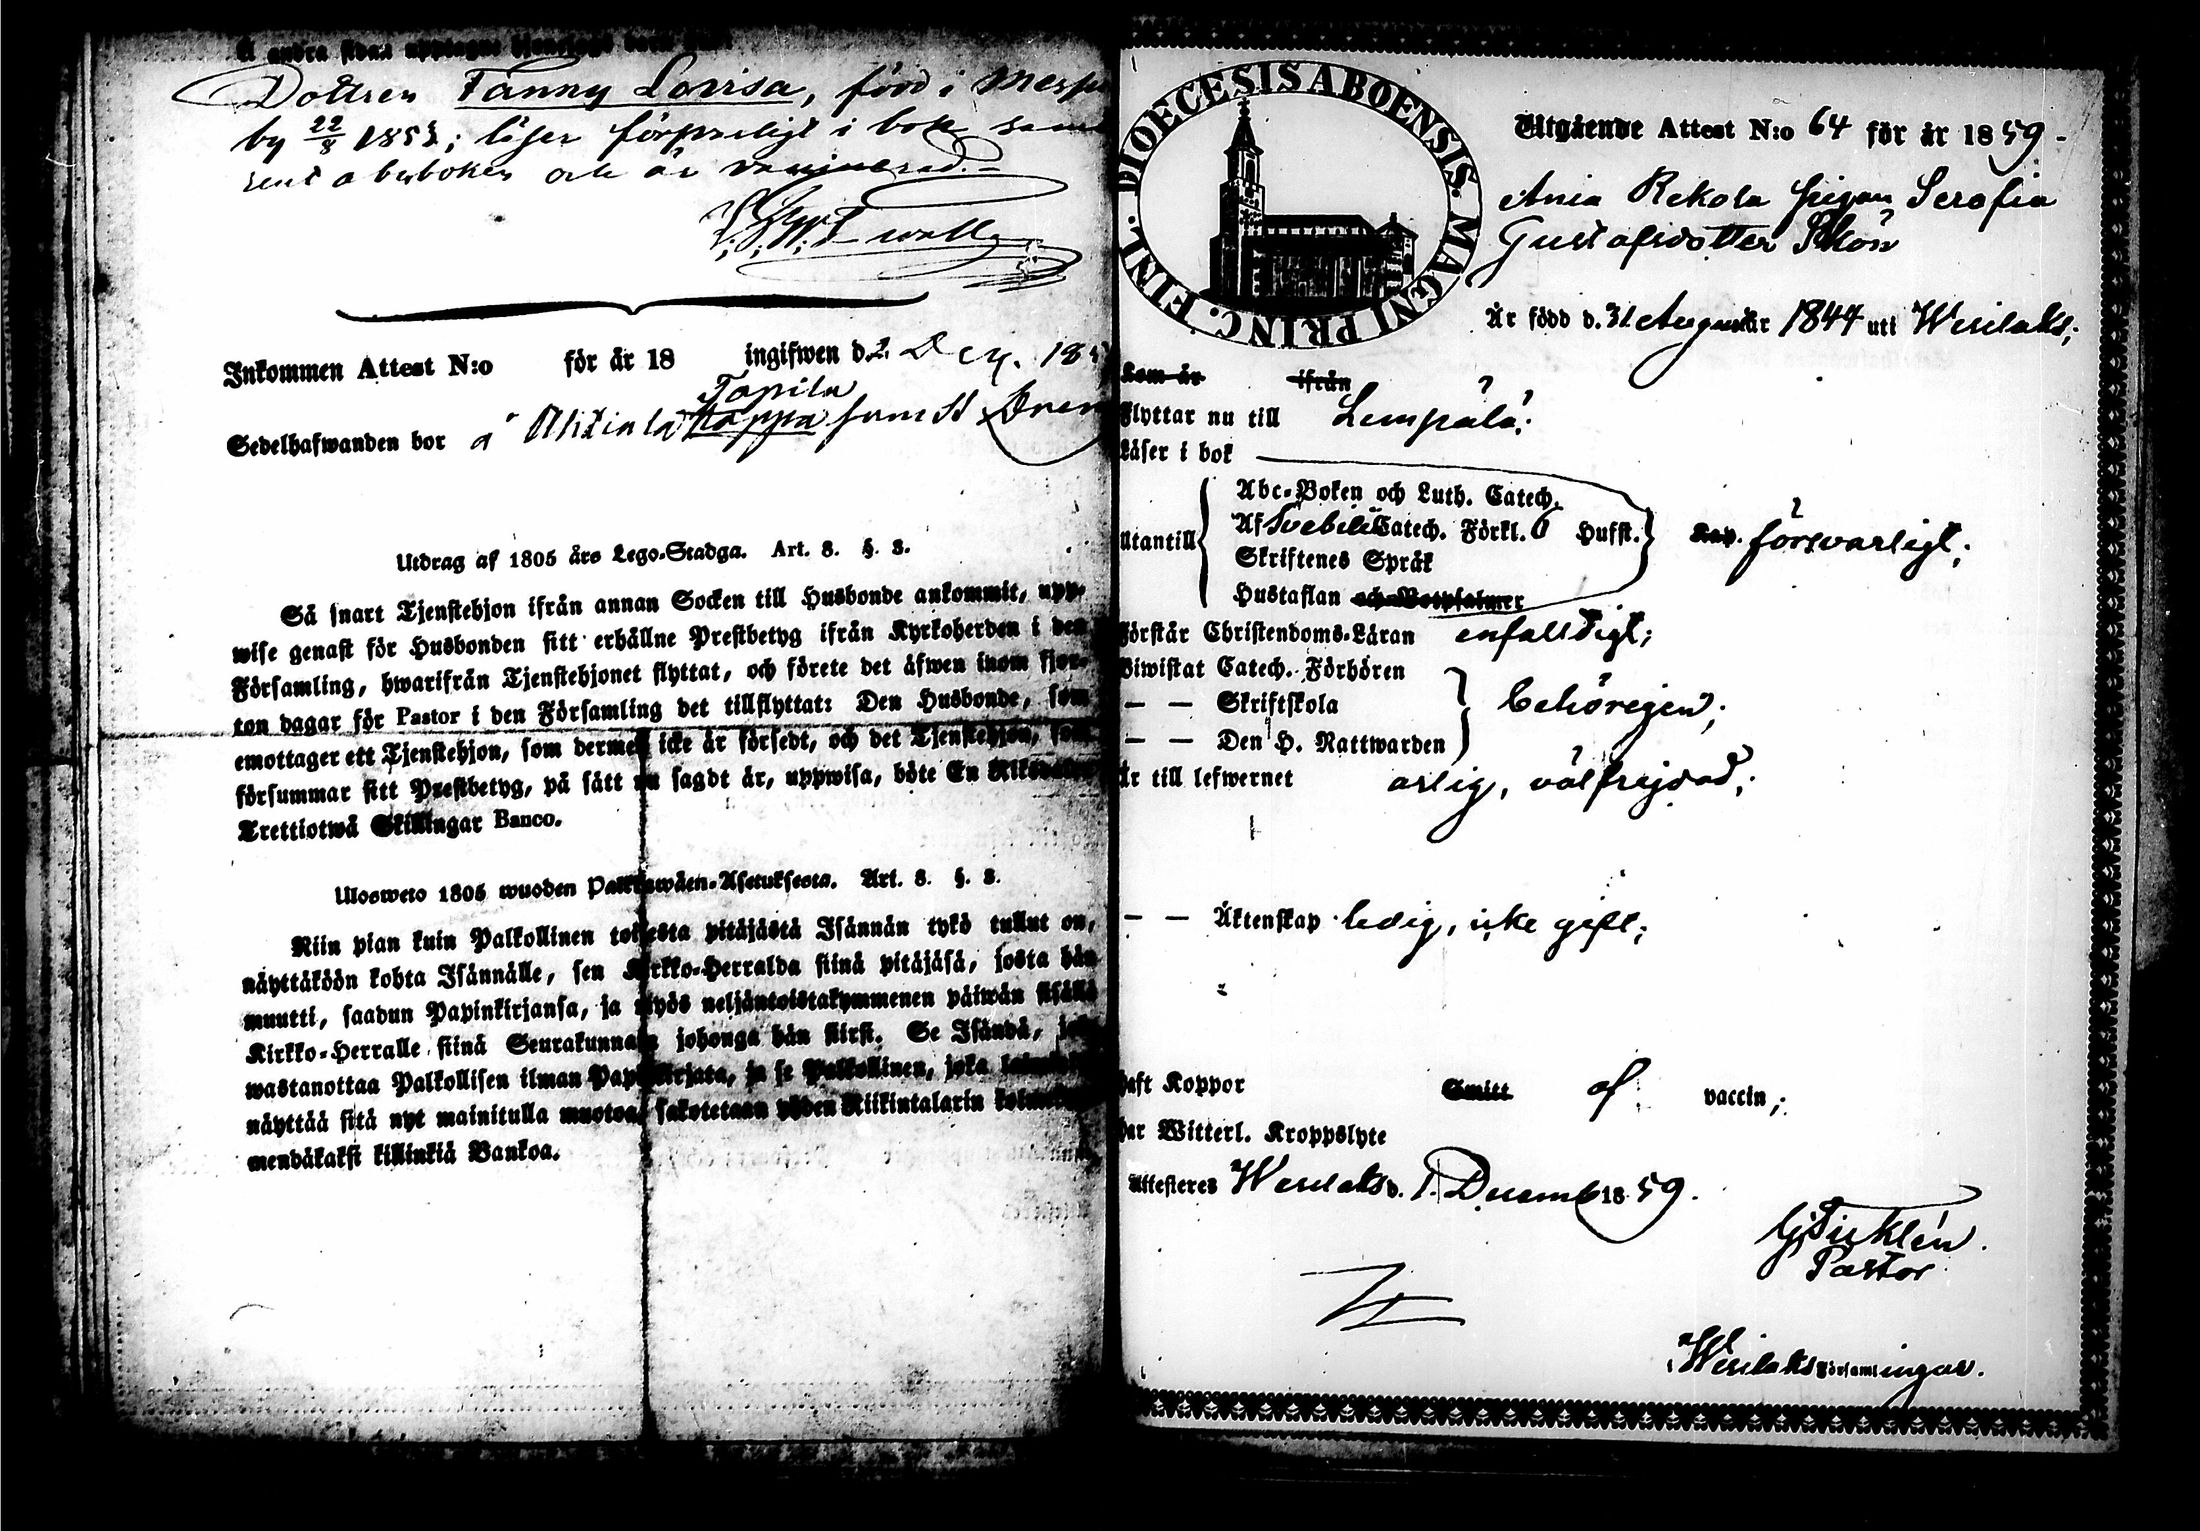 å andra sidan upptagne
Dottren Fanny Lovisa, född i
by 22/8 1853; läser försvarligt i bok samt
och är vaccinerad.
Inkommen Attest N:o för år 18 ingifwen d. 2 Decem. 185
Tapila
Sedelhafwanden bor å Ahtiala Kappa
Utdrag af 1805 års Lego-Stadga. Art. 8. §. 3.
Så snart Tjenstehjon ifrån annan Socken till Husbonde ankommit, upp-
wise genast för Husbonden sitt erhållne Prestbetyg ifrån Kyrkoherden i den
Församling, hwarifrån Tjenstehjonet flyttat, och förete det äfwen inom fjor-
ton dagar för Pastor i den Församling det tillflyttat: Den Husbonde, som
emottager ett Tjenstehjon, som dermed icke är försedt, och det Tjenstehjon, som
försummar sitt Prestbetyg, på sätt nu sagdt är, uppwisa, böte En Riksdaler
Trettiotwå Skillingar Banco.
Ulosweto 1805 wuoden Palkkawäen-Asetuksesta. Art. 8. §. 3.
Niin pian kuin Palkollinen toisesta pitäjästä Isännän tykö tullut on,
näyttäköön kohta Isännälle, sen Kirkko-Herralda siinä pitäjäsä, josta hän
muutti, saadun Papinkirjansa, ja myös neljäntoistakymmenen päiwän sisällä
Kirkko-Herralle siinä Seurakunnasa johonga hän siirsi. Se Isändä, joka
wastanottaa Palkollisen ilman Papinkirjata, ja se Palkollinen, joka
näyttää sitä nyt mainitulla muotoa, sakotetaan yhden Riikintalarin
mendäkaksi killinkiä Bankoa.
DIOECESIS ABOENSIS. MAGNI PRINC. FINL.
Utgående Attest N:o 64 för år 1859
Rekola pigan Serafia
Gustafsdotter
Är född d. 31 August år 1844 uti Wesilaks;
Kom år ifrån
Flyttar nu till Lempälä;
Läser i bok
Abc-Boken och Luth. Catech.
Utantill Af Svebilii Catech. Förkl. 6 Hufst. Kap. försvarligt;
Skriftenes Språk
Hustaflan och Botpsalmer
Förstår Christendoms-Läran enfalldigt;
Biwistat Catech. Förhören
— — Skriftskola behörigen;
— — Den H. Nattwarden
Är till lefwernet ärlig, välfrejdad;
— — Äktenskap ledig, icke gift;
haft Koppor Smitt af vaccin;
har Witterl. Kroppslyte
Attesteras Wesilaks d. 1. Decemb 1859.
Pastor
Wesilaks Församlingar.